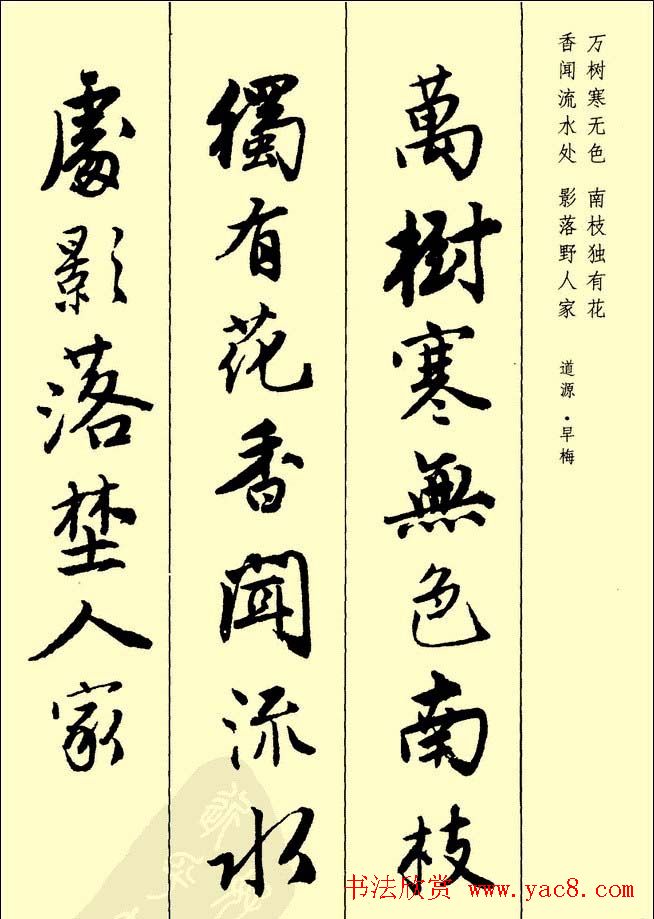 万树寒无色 南枝独有花
香闻流水处 影落野人家
道源·早梅
萬樹寒無色南枝
獨有花香聞流水
處影落埜人家
书法欣赏 www.yac8.com